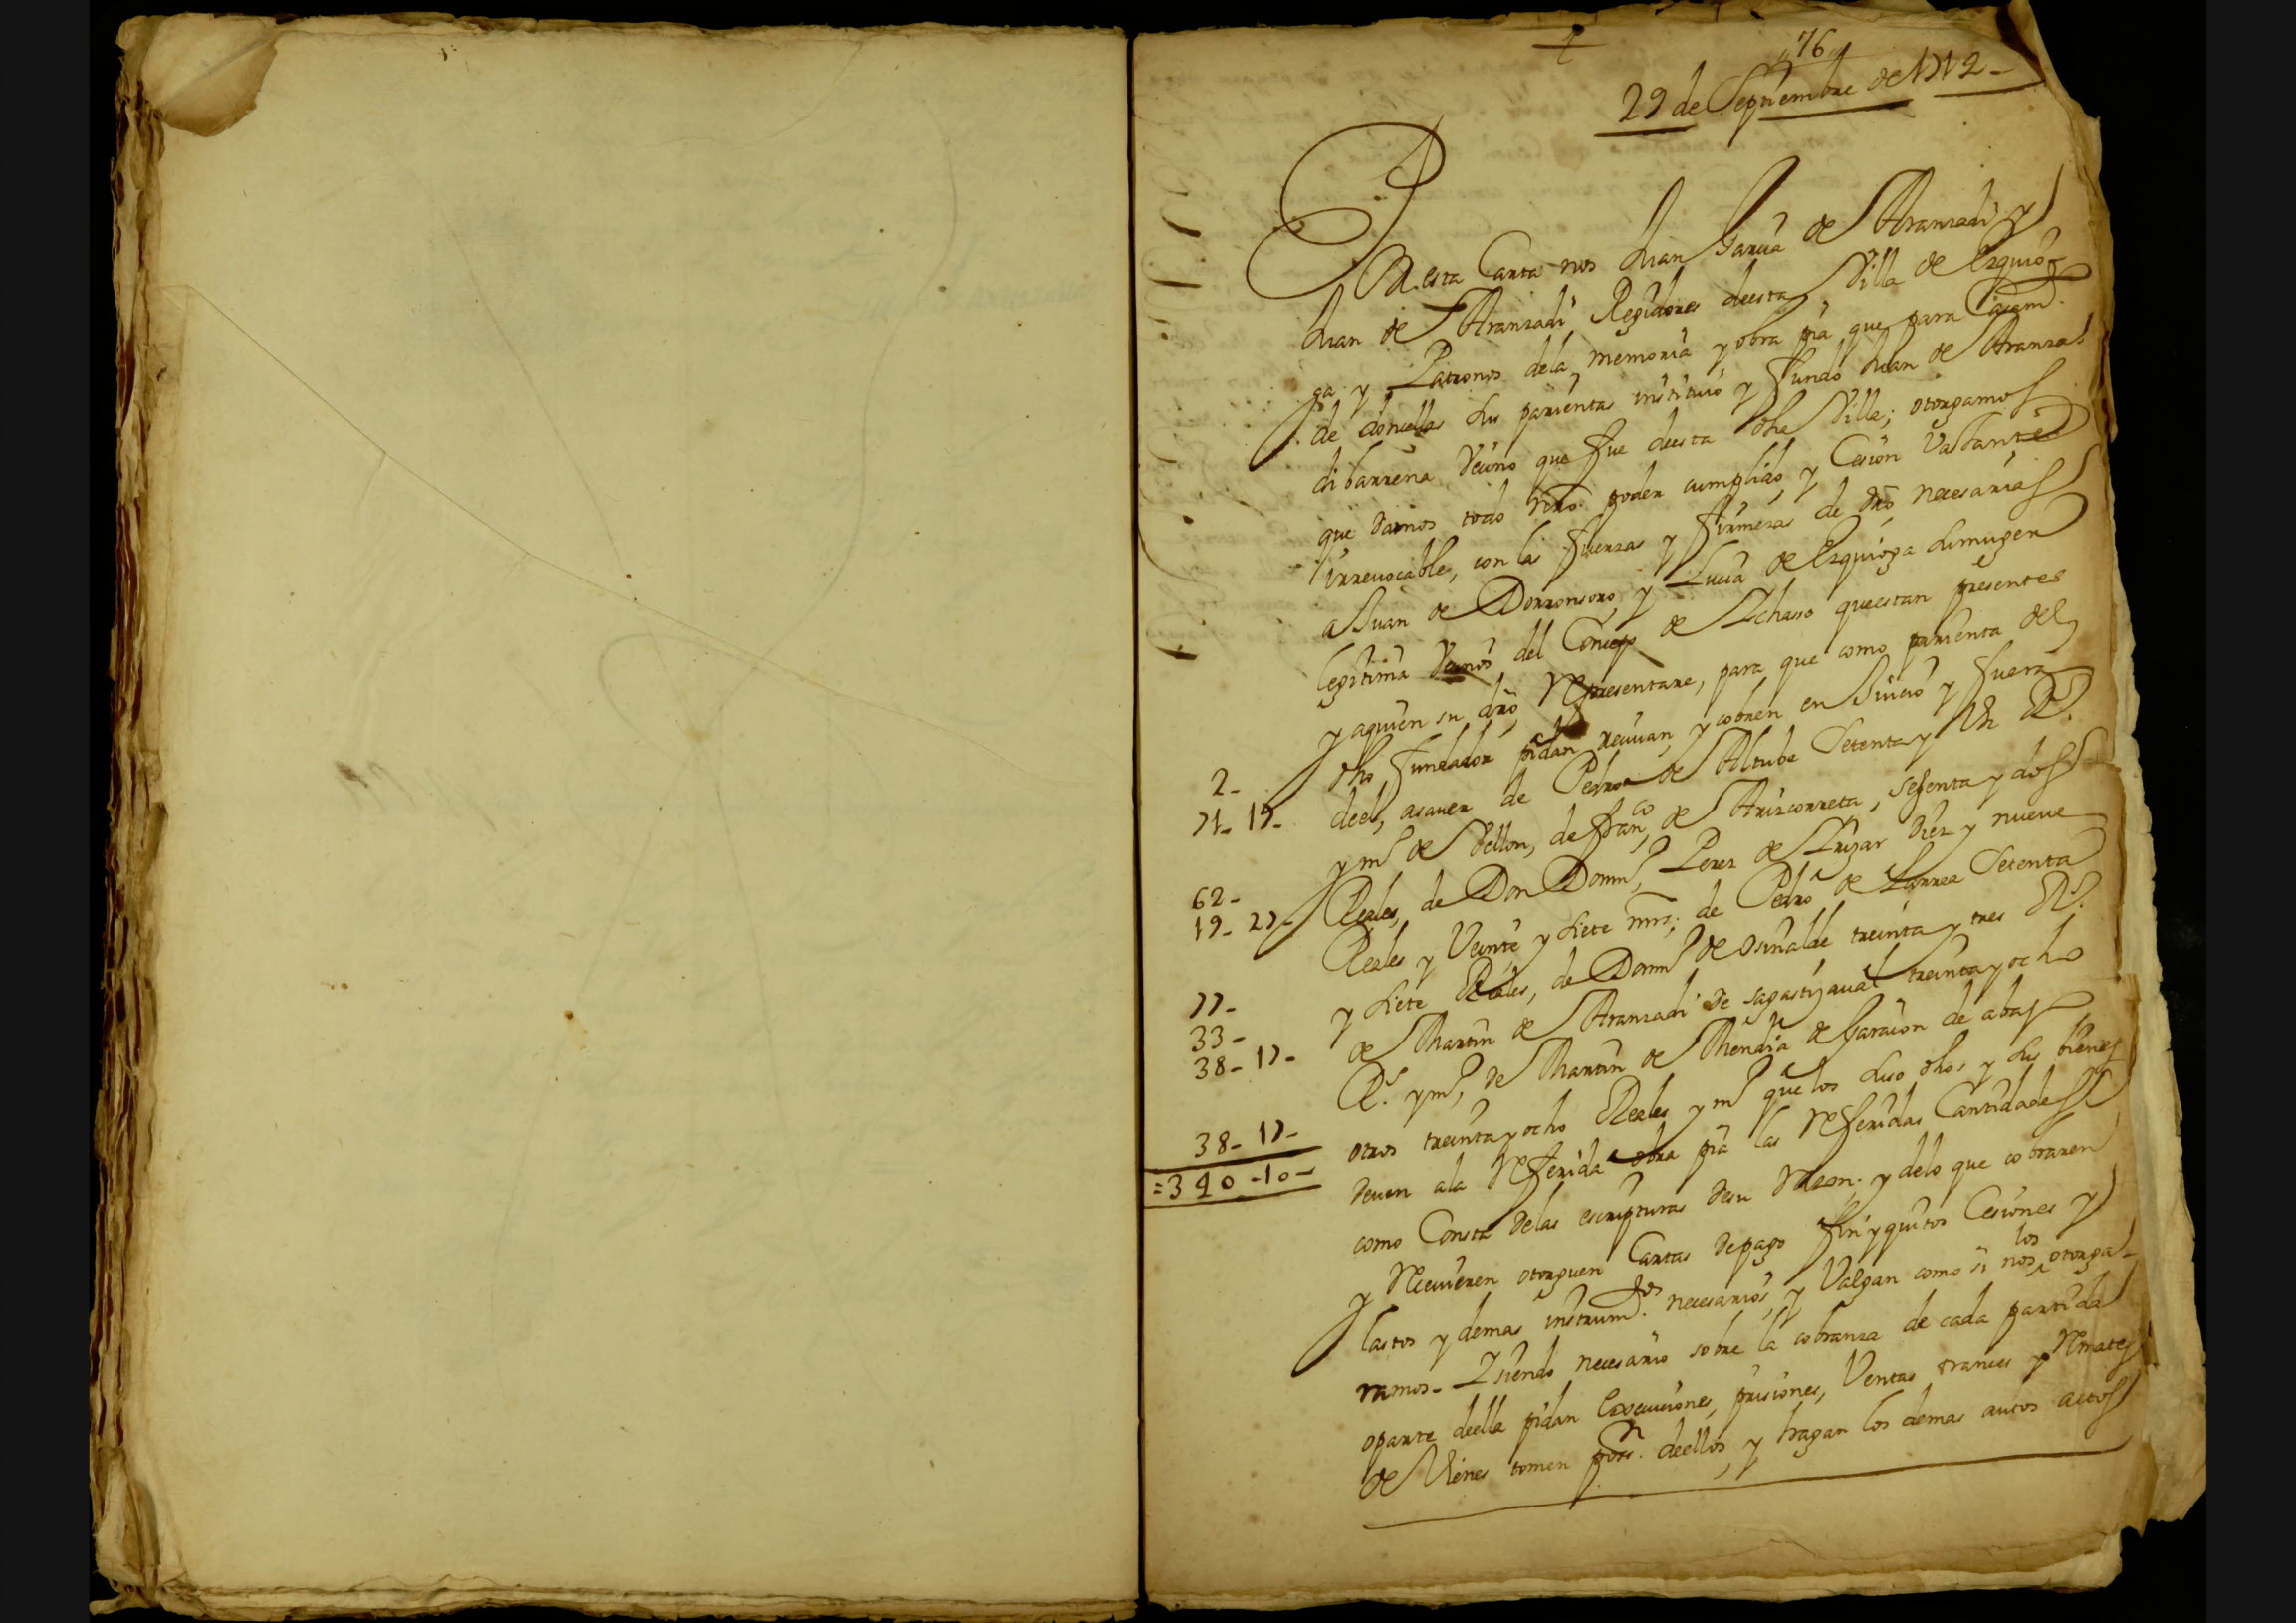 76
29 de Septiembre de 1712 -
Por esta Carta nos Juan Garcia de Aranzadi y
Juan de Aranzadi Regidores deesta Villa de Ezquio-
ga y Patronos dela memoria y obra pia que para Casam.to
de donzellas sus parientas instituio y fundo Juan de Aranza
di barrena Vecino que fue deesta dha Villa; otorgamos
que damos todo nro poder cumplido, y Cesion Vastante
irreuocable, con las fuerzas y firmezas de dro necesarias
a Juan de Dorronsoro, y Lucia de Ezquioga su muger
legitima Vecinos del Concejo de Ichaso que estan presentes
y aquien su dro Representare, para que como parienta del
2- dho fundador pidan reciuan, y cobren en Juicio y fuera
71- 17- deel, asauer de Pedro de Altube Setenta y Un R.s
y m.o de Vellon, de fran.co de Arizcorreta, sesenta y dos
62- Reales, de Don Dom.o Perez de Arizar diez y nueve
19- 27- Reales y Veinte y siete mrs; de Pedro de Larrea Setenta
77- y siete Reales, de Dom.o de Osinalde treinta y tres R.s
33- de Martin de Aranzadi de sagastizaual treinta y ocho
38- 17- R.s y m.o, de Martin de Mendia de Garacion de abajo
38- 17- otros treinta y ocho Reales y m.o que los suso dhos, y sus bienes
=340-10- deuen ala Referida obra pia las Referidas Cantidades
como Consta delas escripturas desu Razon. y delo que cobraren
y Reciuieren otorguen Cartas depago finiquitos Cesiones y
lastos y demas instrum.tos necesarios, y Valgan como si nos los otorga-
ramos- Y siendo necesario sobre la cobranza de cada partida
oparte deella pidan Execuciones, prisiones, Ventas trances y Remates
de Vienes tomen poss.n deellos, y hagan los demas autos actos